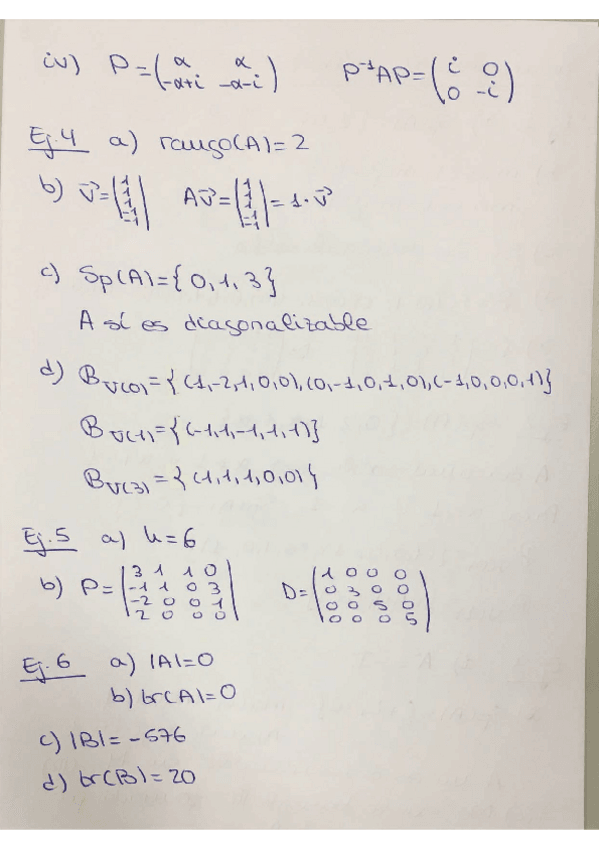 iv) P = (α α / -α+i -α-i) P⁻¹AP = (i 0 / 0 -i)
Ej. 4 a) rango(A) = 2
b) v⃗ = (1 1 1 -1 -1) Av⃗ = (1 1 1 -1 -1) = 1·v⃗
c) Sp(A) = { 0, 1, 3 }
A sí es diagonalizable
d) B_V(0) = { (1,-2,1,0,0), (0,-1,0,1,0), (-1,0,0,0,1) }
B_V(1) = { (-1,1,-1,1,1) }
B_V(3) = { (1,1,1,0,0) }
Ej. 5 a) k = 6
b) P = (3 1 1 0 / -1 1 0 3 / -2 0 0 1 / 2 0 0 0) D = (1 0 0 0 / 0 3 0 0 / 0 0 5 0 / 0 0 0 5)
Ej. 6 a) |A| = 0
b) tr(A) = 0
c) |B| = -576
d) tr(B) = 20